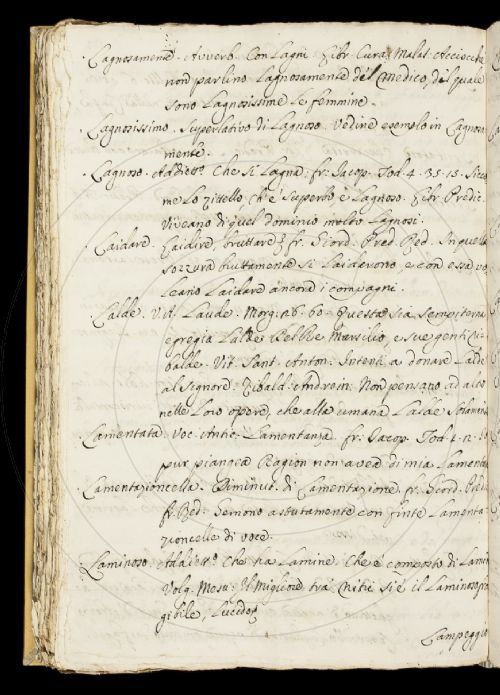 Lagnosamente. Avverb. Con Lagni. Libr. Cura. Malat. Acciocche
non parlino Lagnosamente del Medico, del quale
sono Lagnosissime le femmine.
Lagnosissimo. Superlativo di Lagnoso. Vedine esemplo in Lagnosa
mente.
Lagnoso. Addiett. Che si Lagna: fr: Jacop. Tod. 4. 35. 15. Sicco
me Lo Zittello ch'è Superbo è Lagnoso. Libr. Predic.
Viveano di quel dominio molto Lagnosi.
Laidare. Laidire, bruttare. fr. Giord. Pred. Red. In quella
sozzura bruttamente si Laiderono, e con essa vo
leano Laidare ancora i compagni.
Lalde. V. A. Laude. Morg: 26. 60. Questo sia sempiterna
egregia Lalde Del Re Marsilio, e sue genti ri
balde. Vit. Sant. Anton: Intenti a donare Lalde
al Signore. Tibald: Andrein: Non pensano ad altro
nelle Loro opere, che alla umana Lalde Solamente
Lamentata. Voc. Antic. Lamentanza. fr. Jacop. Tod. 4.
pur piangea Ragion non avea di mia Lamenta
Lamentazioncella. Diminut. di Lamentazione. fr. Giord. Pred.
Red. Gemono astutamente con finte Lamenta
zioncelle di voce.
Laminoso. Addiett. Che ha Lamine. Che è composto di Lamin
Volg. Mesu: Il migliore tra i si è il Laminoso
gibile, Lucido
Lampeggia